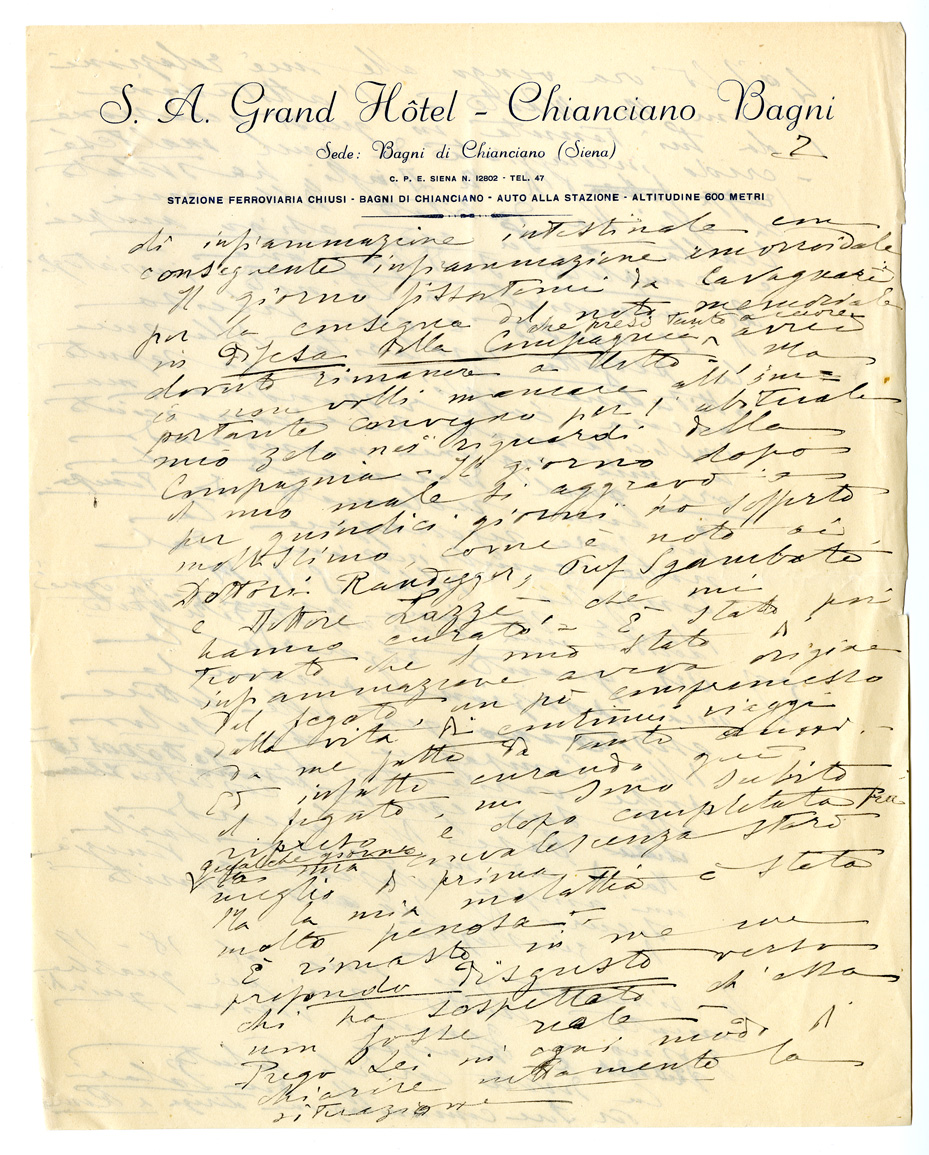 S. A. Grand Hôtel - Chianciano Bagni
Sede: Bagni di Chianciano (Siena)
2
C. P. E. SIENA N. 12802 - TEL. 47
STAZIONE FERROVIARIA CHIUSI - BAGNI DI CHIANCIANO - AUTO ALLA STAZIONE - ALTITUDINE 600 METRI
di infiammazione intestinale con
conseguente infiammazione emorroidale
Il giorno fissatomi da Cavagnari
per la consegna del noto memoriale
che presi tanto a cuore
in Difesa della Compagnia, avrei
dovuto rimanere a letto - Ma
io non volli mancare all'im=
portante convegno per l'abituale
mio zelo nei riguardi della
Compagnia - Il giorno dopo
il mio male si aggravò e
per quindici giorni ho sofferto
moltissimo come è noto ai
Dottori Randegger, Prof Sgambati
e Dottore Lazzè, che mi
hanno curato, - È stato poi
trovato che il mio stato di
infiammazione aveva origine
del fegato, un pò compromesso
dalla vita di continui viaggi
da me fatta da tanti anni. -
Ed infatti curando qui
il fegato, mi sono subito
ripreso e dopo completata
qualche giorno
la mia convalescenza starò
meglio di prima
Ma la mia malattia è stata
molto penosa -
È rimasto in me un
profondo Disgusto verso
chi ha sospettato ch'essa
non fosse reale -
Prego Lei in ogni modo di
chiarire nettamente la
situazione